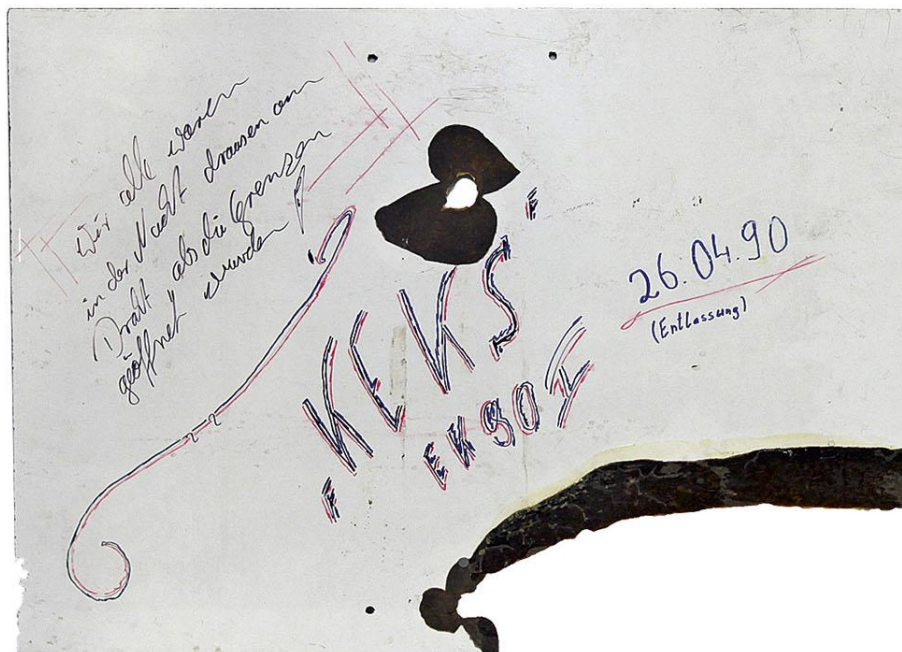 Wir alle waren
in der Nacht drausen am
Draht als die Grenzen
geöffnet wurden!
"KEKS"
EK 90 I
26.04.90
(Entlassung)